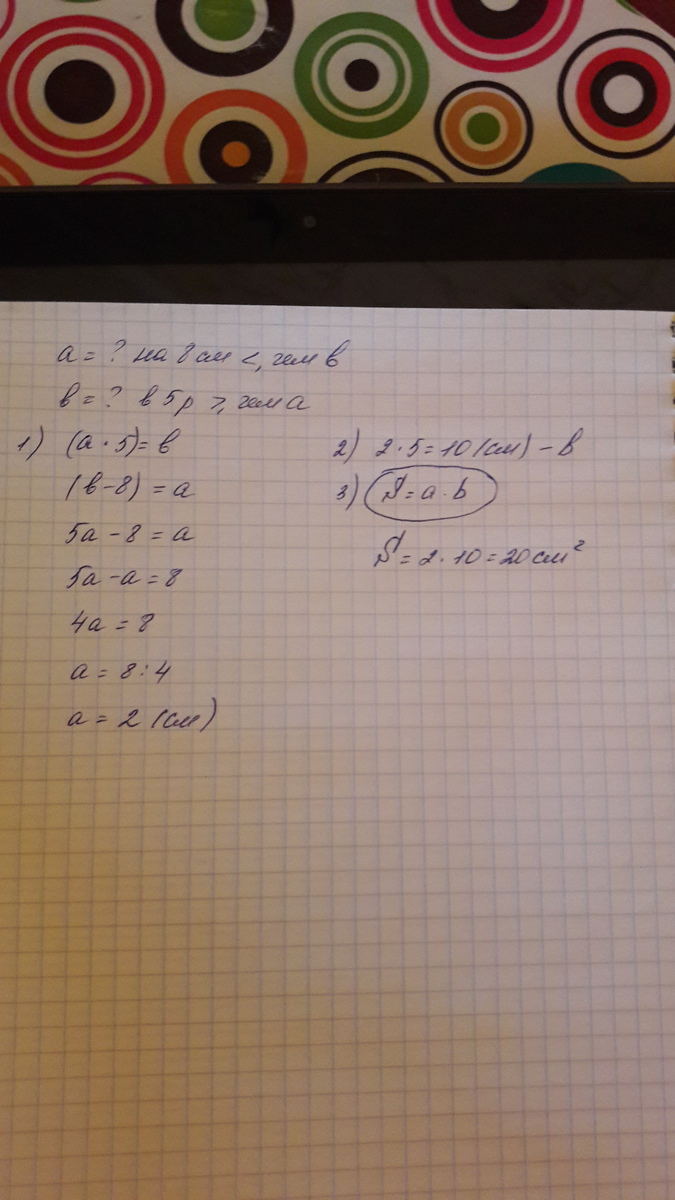 a = ? на 8 см <, чем в
в = ? в 5 р >, чем а
1) (a · 5) = в
(в - 8) = a
5a - 8 = a
5a - a = 8
4a = 8
a = 8 : 4
a = 2 (см)
2) 2 · 5 = 10 (см) - в
3) S = a · b
S = 2 · 10 = 20 см²